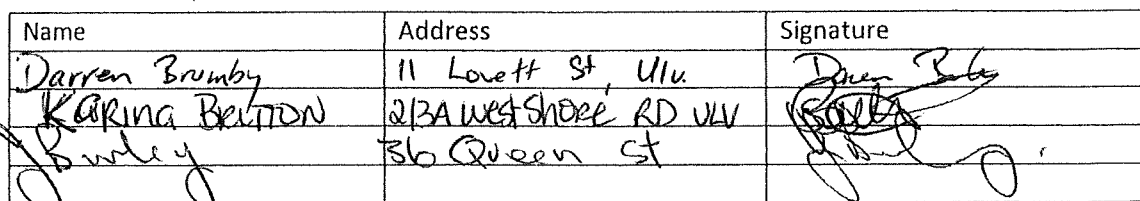 Name Address Signature
Darren Brumby 11 Lovett St, Ulv. Darren Brumby
KARINA BRITTON 2/3A West Shore RD ULV
J Burley 36 Queen St